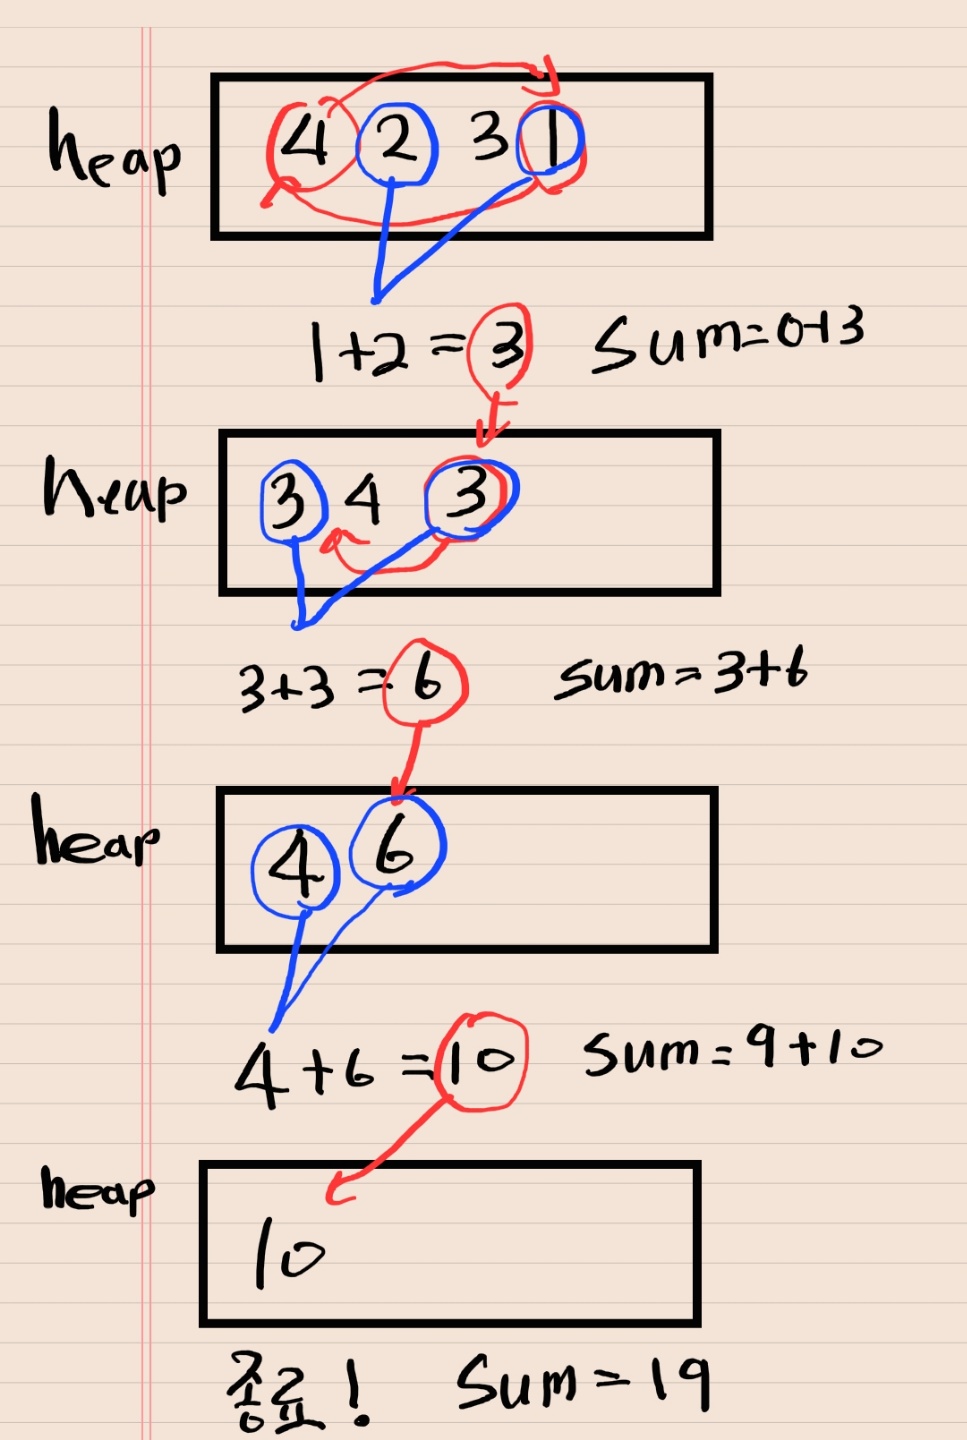 heap 4 2 3 1
1+2=3 Sum=0+3
heap 3 4 3
3+3=6 sum=3+6
heap 4 6
4+6=10 Sum=9+10
heap 10
종료! Sum=19